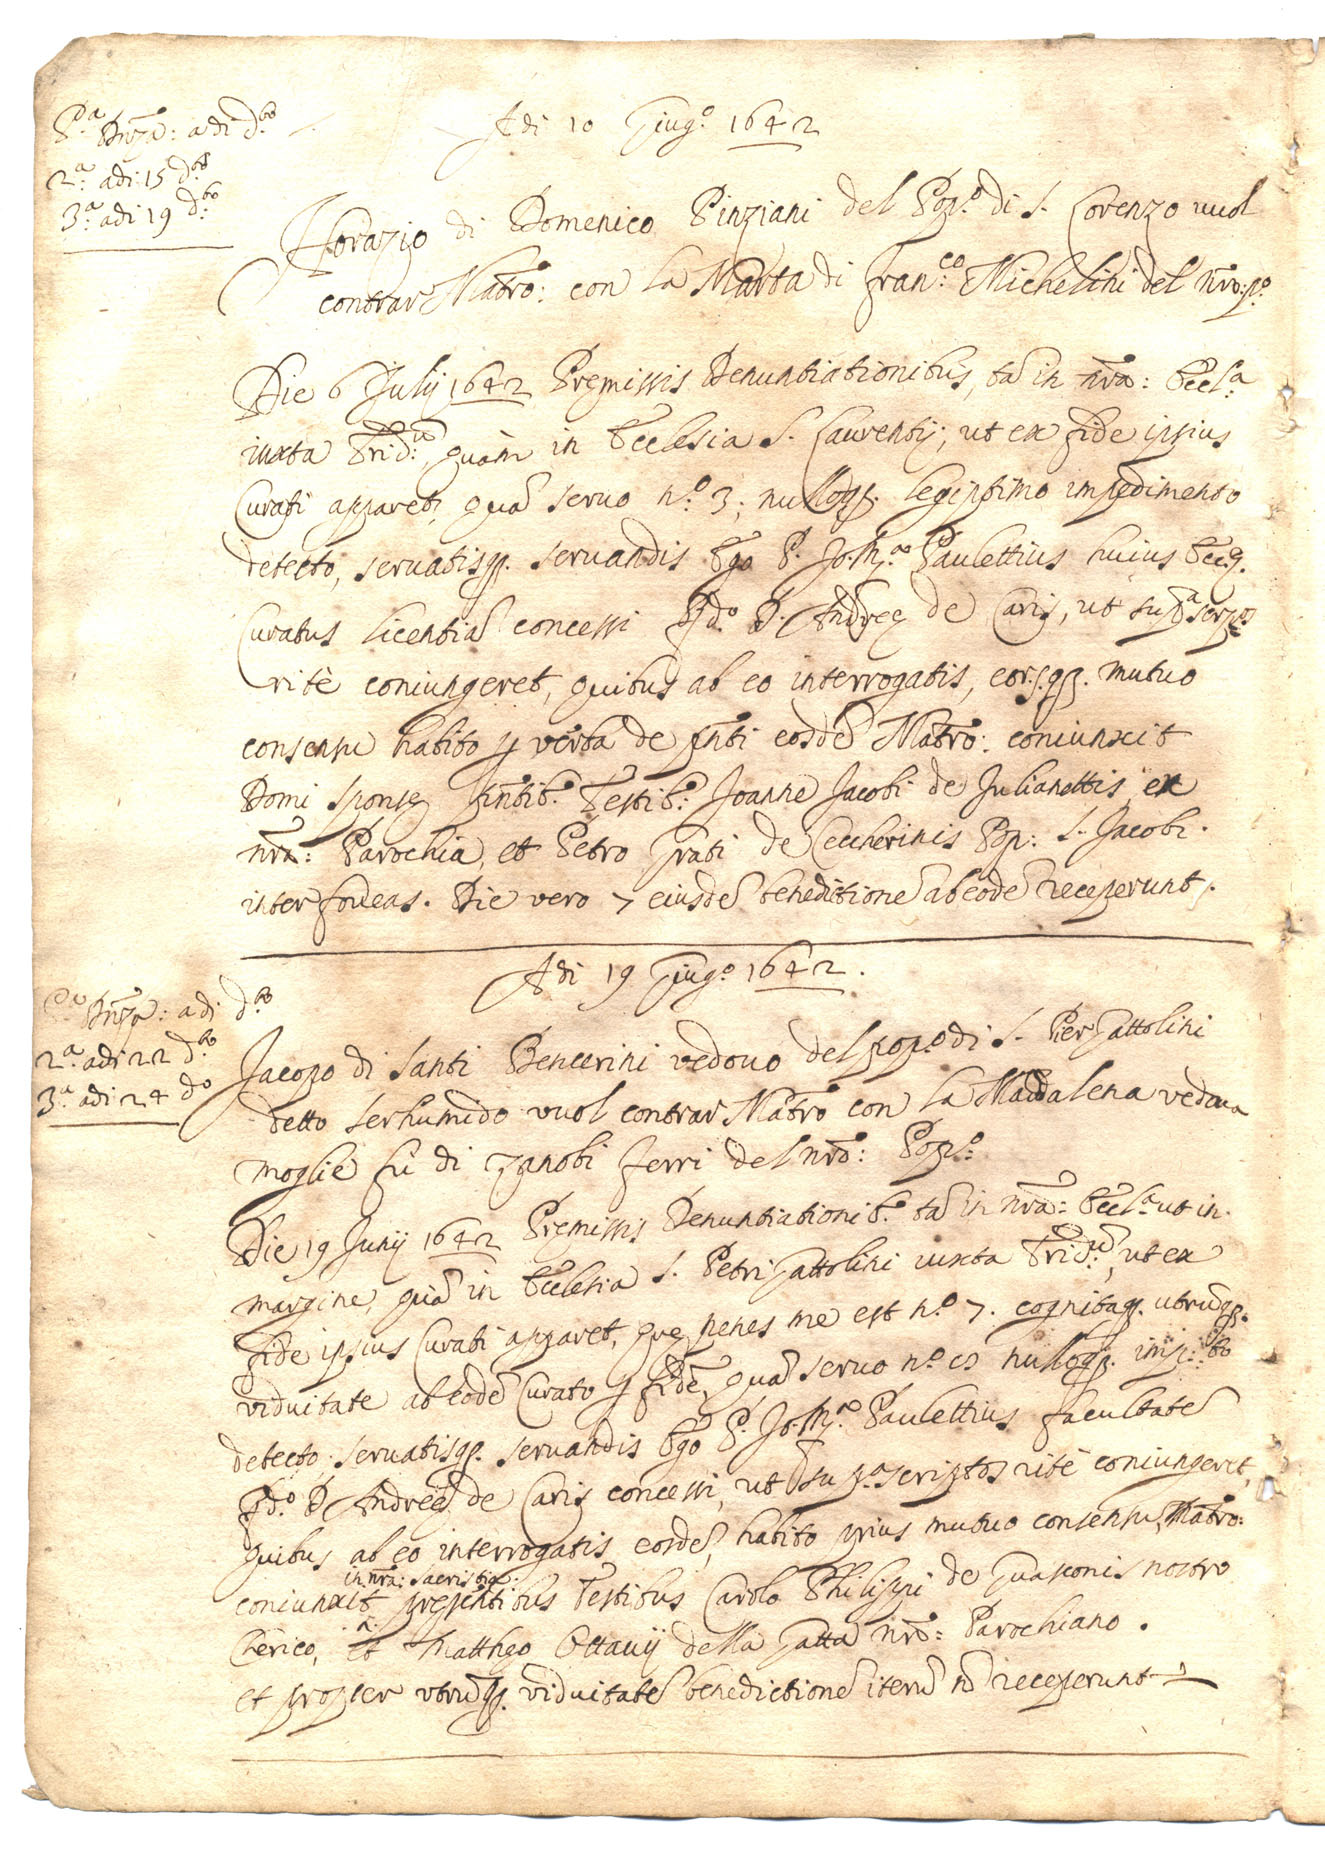 P.a Dnza: adi d.o
2.a adi 15 d.o
3.a adi 19 d.o
Adi 10 Giug.o 1642
Horazio di Domenico Pinziani del Pop.o di S. Lorenzo vuol
contrar Matro: con la Marta di Fran.co Michelini del nro: p.o
Die 6 Julij 1642 Premissis Denuntiationibus, tā in nra: Eccl.a
iuxta Trid. quàm in Ecclesia S. Laurentij, ut ex fide ipsius
Curati apparet, quā servo n.o 3, nulloq. legiptimo impedimento
detecto, servatisq. servandis Ego P. Jo: M.a Paulettius huius Eccę.
Curatus licentiā concessi P.do P. Andreę de Caris, ut sup.a scrip.os
ritè coniungeret, quibus ab eo interrogatis, eor.q. mutuo
consensu habito p verba de pnti eosdē Matro: coniunxit
Domi sponsę pntib. Testib. Joanne Jacobi de Julianettis ex
nra: Parochia, et Petro Grati de Ceccherinis Pop: S. Jacobi
inter foveas. Die vero 7 eiusdē beneditionē ab eodē receperunt.
Adi 19 Giug.o 1642.
P.a Dnza: adi d.o
2.a adi 22 d.o
3.a adi 24 d.o
Jacopo di Santi Bencerini vedovo del pop.o di S. Pier Gattolini
detto Serhumido vuol contrar Matro con la Maddalena vedova
moglie fù di Zanobi Ferri del nro: Pop.o
Die 19 Junij 1642 Premissis Denuntiationib. tā in nra: Eccl.a ut in
margine, quā in Ecclesia S. Petri Gattolini iuxta Trid., ut ex
fide ipsius Curati apparet, quę penes me est n.o 7. cognitaq. utriusq.
viduitate ab eodē Curato p fidē, quā servo n.o nulloq. imp.to
detecto servatisq. servandis Ego P. Jo: M.a Paulettius facultatē
P.do P Andreę de Caris concessi, ut sup.a scriptos ritè coniungeret,
quibus ab eo interrogatis eosdē, habito prius mutuo consensu, Matro:
in nra: sacristia
coniunxit presentibus Testibus Carolo Philippi de Guasconis nostro
Cherico, et Mattheo Ottavij della Gatta nro: Parochiano.
et propter utriusq. viduitatē benedictionē iterū nō receperunt